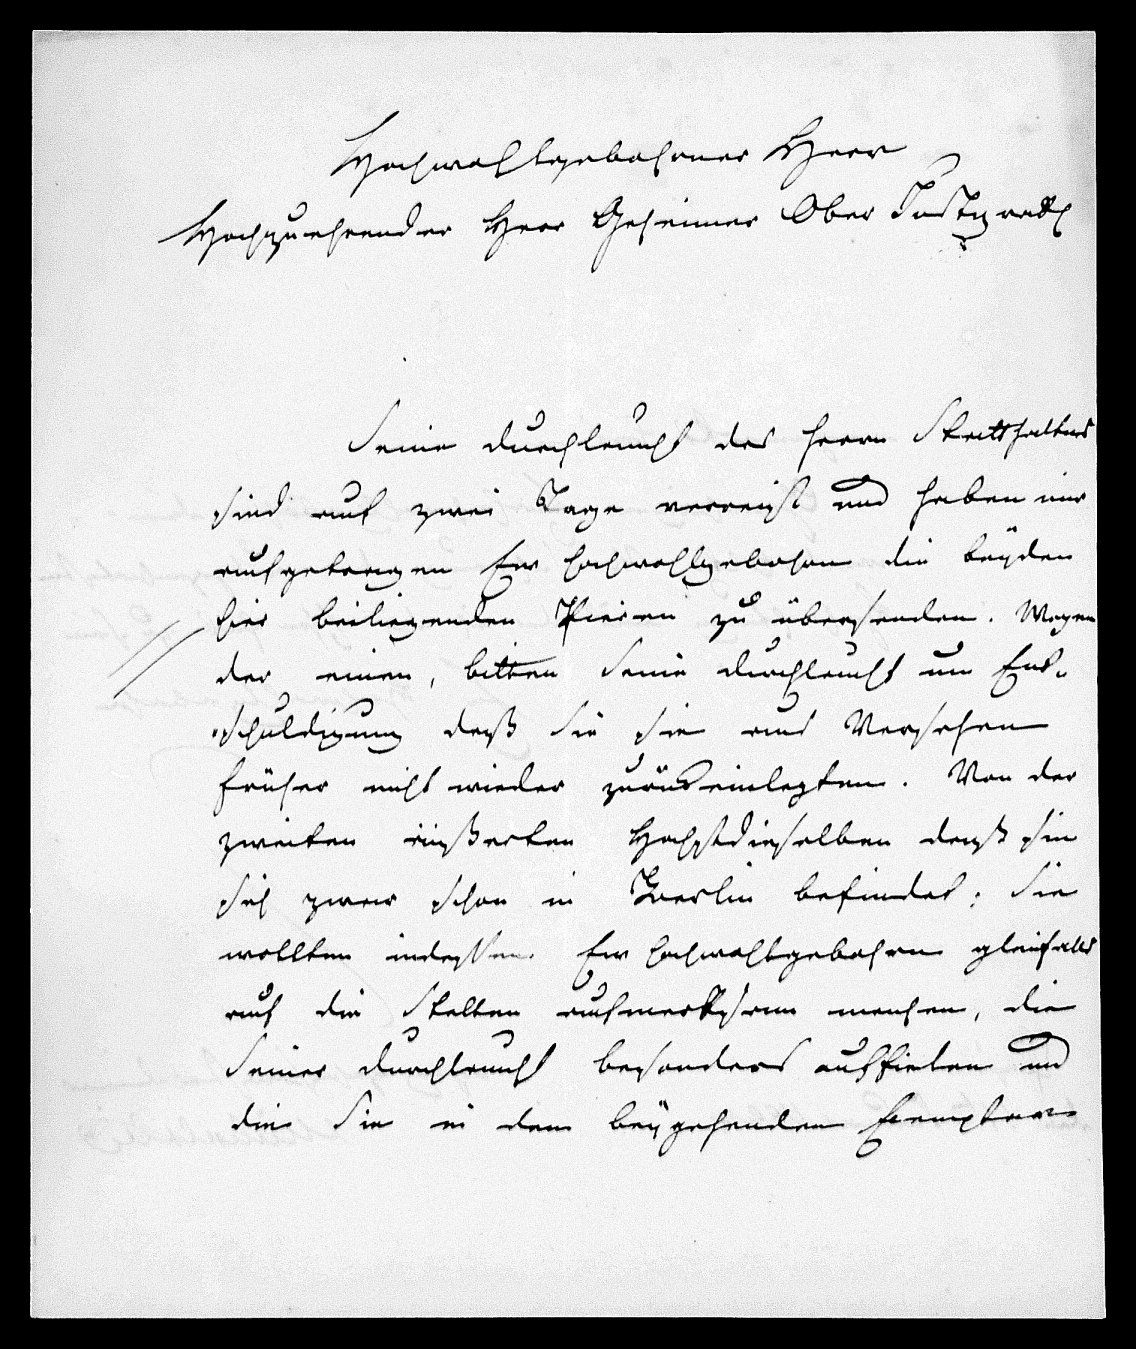 Hochwohlgebohrner Herr
Hochzuehrender Herr Geheimer Ober Justizrath
Seine Durchlaucht der Herr Statthalter
sind auf zwei Tage verreist und haben mir
aufgetragen Ew Hochwohlgebohrn die beyden
hier beiliegenden Piecen zu übersenden. Wegen
der einen, bitten Seine Durchlaucht um Ent-
schuldigung daß Sie sie aus Versehen
früher nicht wieder zurück einlegten. Von der
zweiten äußerten Hochstdieselben daß sie
sich zwar schon in Berlin befindet; Sie
wollten indessen Ew Hochwohlgebohrn gleichfalls
auf die Stellen aufmerksam machen, die
Seiner Durchlaucht besonders auffielen und
die Sie in dem beygehenden Exemplare